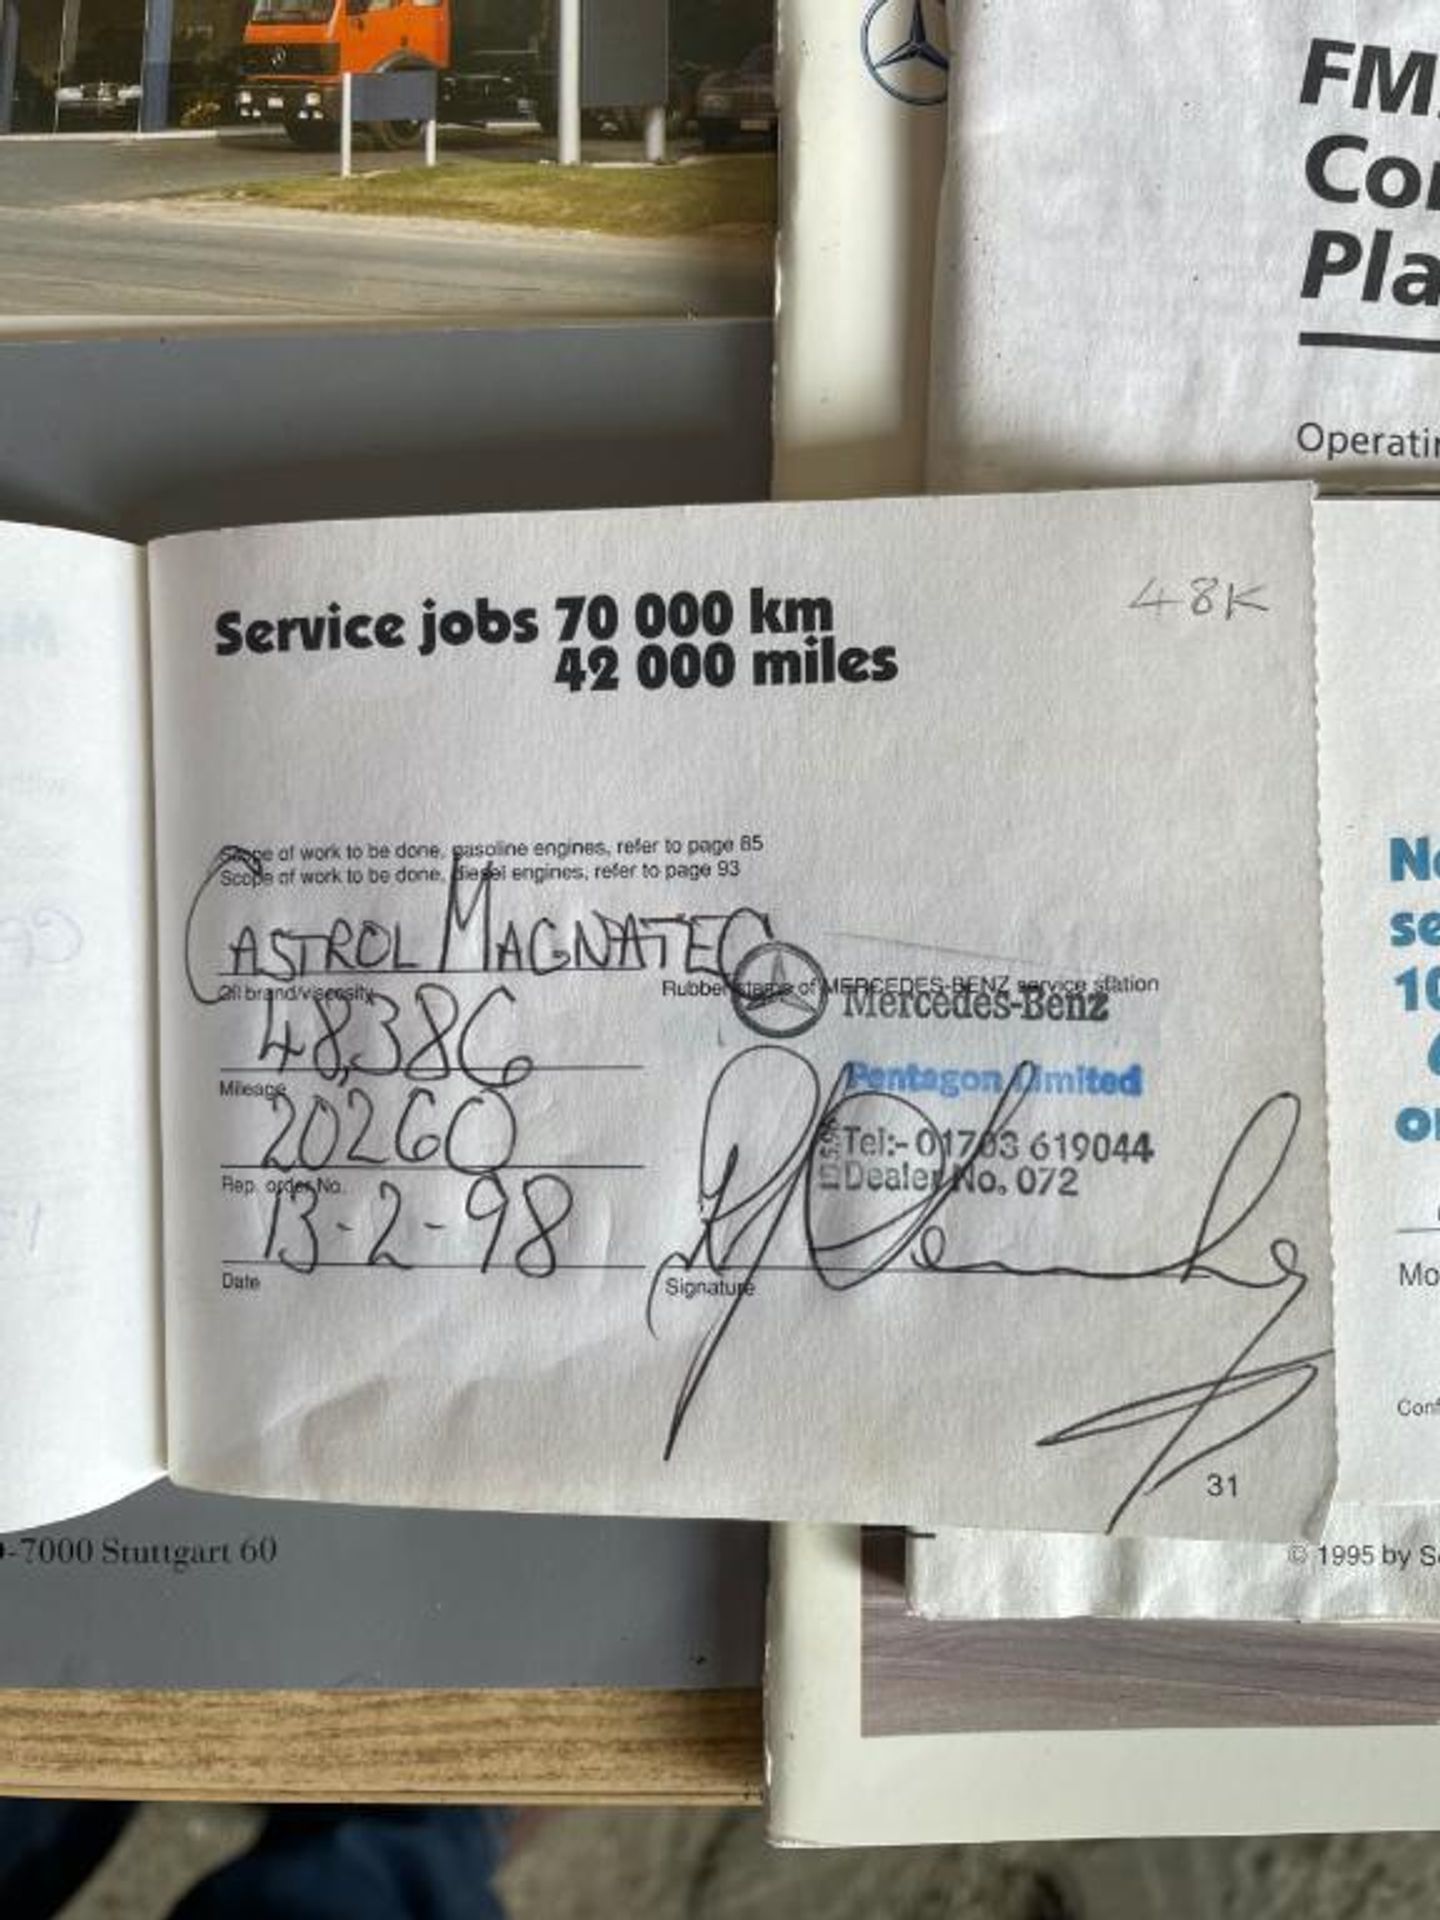 FM
Co
Pla
Operati
Service jobs 70 000 km
42 000 miles
48K
Scope of work to be done, gasoline engines, refer to page 85
Scope of work to be done, diesel engines, refer to page 93
CASTROL MAGNATEC
Oil brand/viscosity
Rubber stamp of MERCEDES-BENZ service station
Mercedes-Benz
48,386
Mileage
Pentagon Limited
20260
Rep. order No.
Tel:- 01703 619044
Dealer No. 072
13-2-98
Date
Signature
31
se
10
or
Mo
Conf
-7000 Stuttgart 60
© 1995 by S